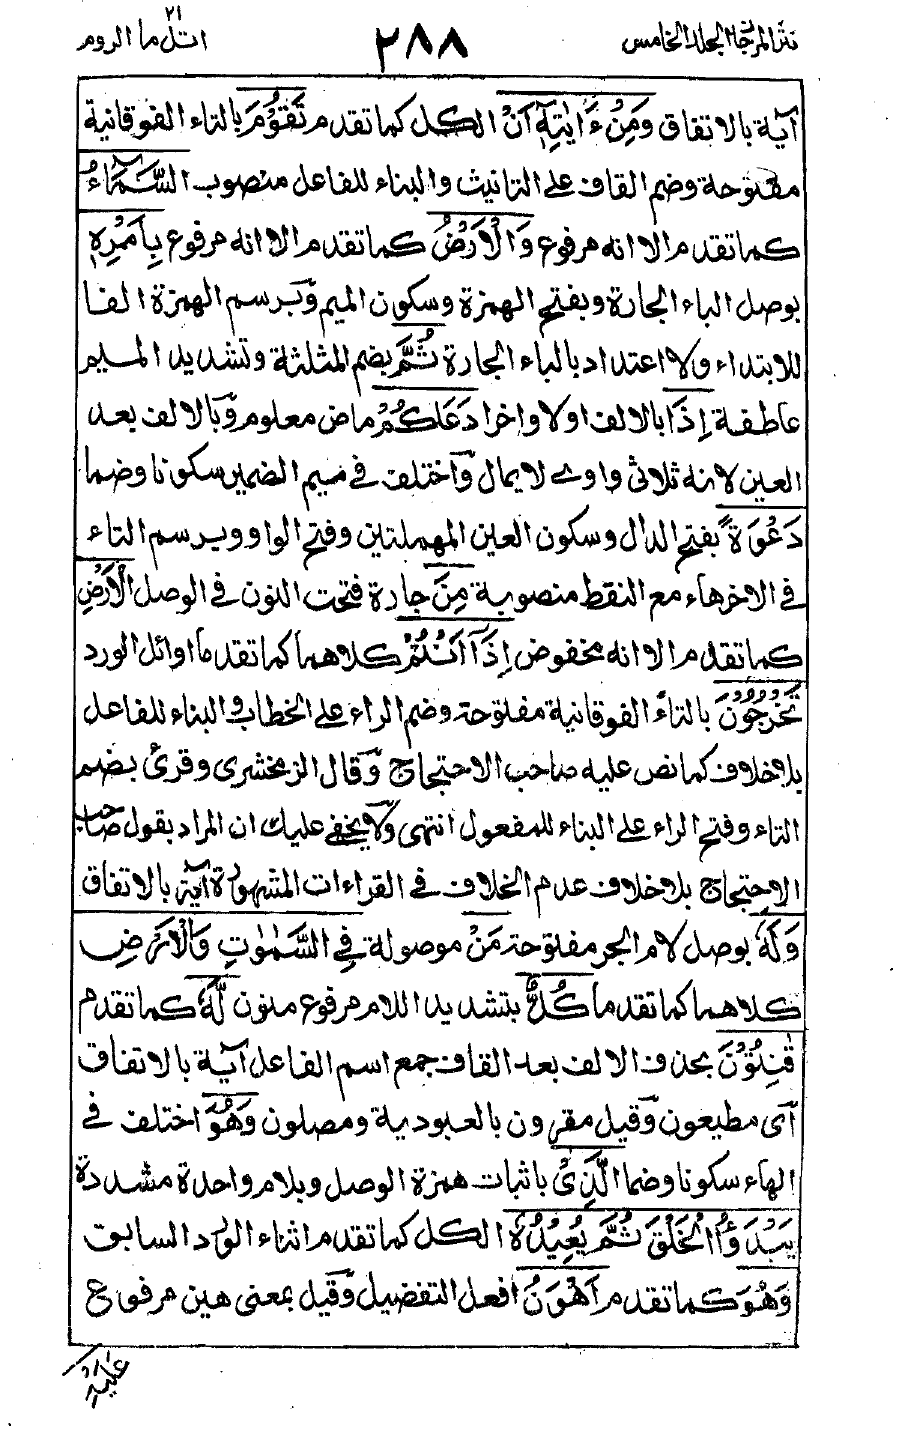 نثر المرجان المجلد الخامس ٢٨٨ اتل ما ٢١ الروم
آية بالاتفاق وَمِنْ ءَايٰتِهٖٓ اَنْ الكل كما تقدم تَقُوْمَ بالتاء الفوقانية
مفتوحة وضم القاف على التانيث والبناء للفاعل منصوب السَّمَآءُ
كما تقدم الا انه مرفوع وَالْاَرْضُ كما تقدم الا انه مرفوع بِاَمْرِهٖ
بوصل الباء الجارة وبفتح الهمزة وسكون الميم وبرسم الهمزة الفا
للابتداء ولا اعتداد بالباء الجارة ثُمَّ بضم المثلثة وتشديد الميم
عاطفة اِذَا بالالف اولا واخرا دَعَاكُمْ ماض معلوم وبالالف بعد
العين لانه ثلاثى واوى لا يمال واختلف فى ميم الضمير سكونا وضما
دَعْوَةً بفتح الدال وسكون العين المهملتين وفتح الواو وبرسم التاء
فى الاخر هاء مع النقط منصوبة مِنَ جارة فتحت النون فى الوصل الْاَرْضِ
كما تقدم الا انه مخفوض اِذَآ اَنْتُمْ كلاهما كما تقدما اوائل الورد
تَخْرُجُوْنَ بالتاء الفوقانية مفتوحة وضم الراء على الخطاب والبناء للفاعل
بلا خلاف كما نص عليه صاحب الاحتجاج وقال الزمخشرى وقرئ بضم
التاء وفتح الراء على البناء للمفعول انتهى ولا يخفى عليك ان المراد بقول صاحب
الاحتجاج بلا خلاف عدم الخلاف فى القراءات المشهورة آية بالاتفاق
وَلَهٗ بوصل لام الجر مفتوحة مَنْ موصولة فِى السَّمٰوٰتِ وَالْاَرْضِ
كلاهما كما تقدما كُلٌّ بتشديد اللام مرفوع منون لَّهٗ كما تقدم
قٰنِتُوْنَ بحذف الالف بعد القاف جمع اسم الفاعل آية بالاتفاق
اى مطيعون وقيل مقرون بالعبودية ومصلون وَهُوَ اختلف فى
الهاء سكونا وضما الَّذِىْ باثبات همزة الوصل وبلام واحدة مشددة
يَبْدَؤُا الْخَلْقَ ثُمَّ يُعِيْدُهٗ الكل كما تقدم اثناء الورد السابق
وَهُوَ كما تقدم اَهْوَنُ افعل التفضيل وقيل بمعنى هين مرفوع
عَلَيْهِ